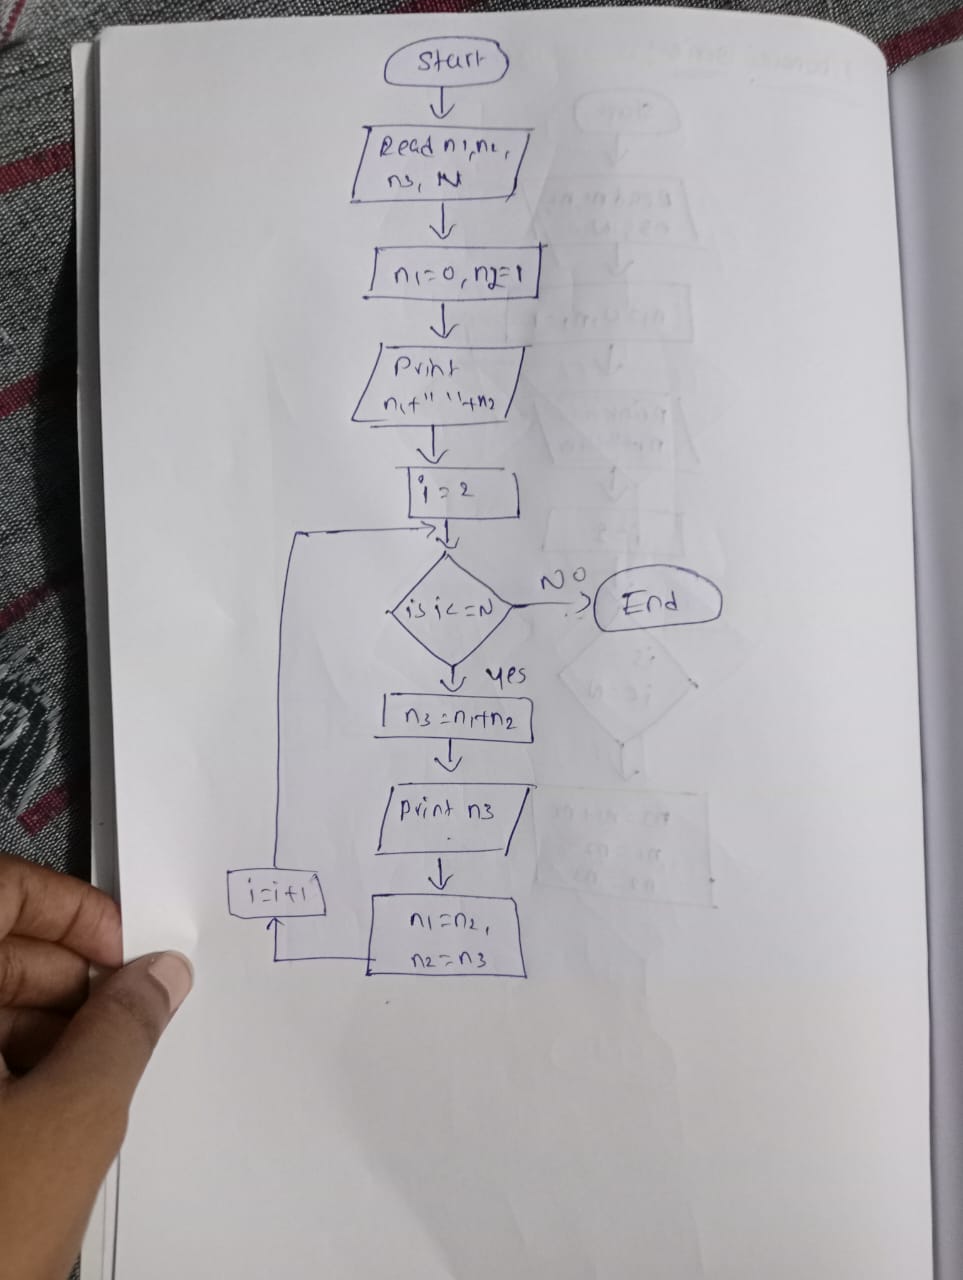 Start
Read n1,n2,
n3, N
n1=0, n2=1
Print
n1+" "+n2
i=2
is i<=N
NO
End
yes
n3=n1+n2
print n3
i=i+1
n1=n2,
n2=n3